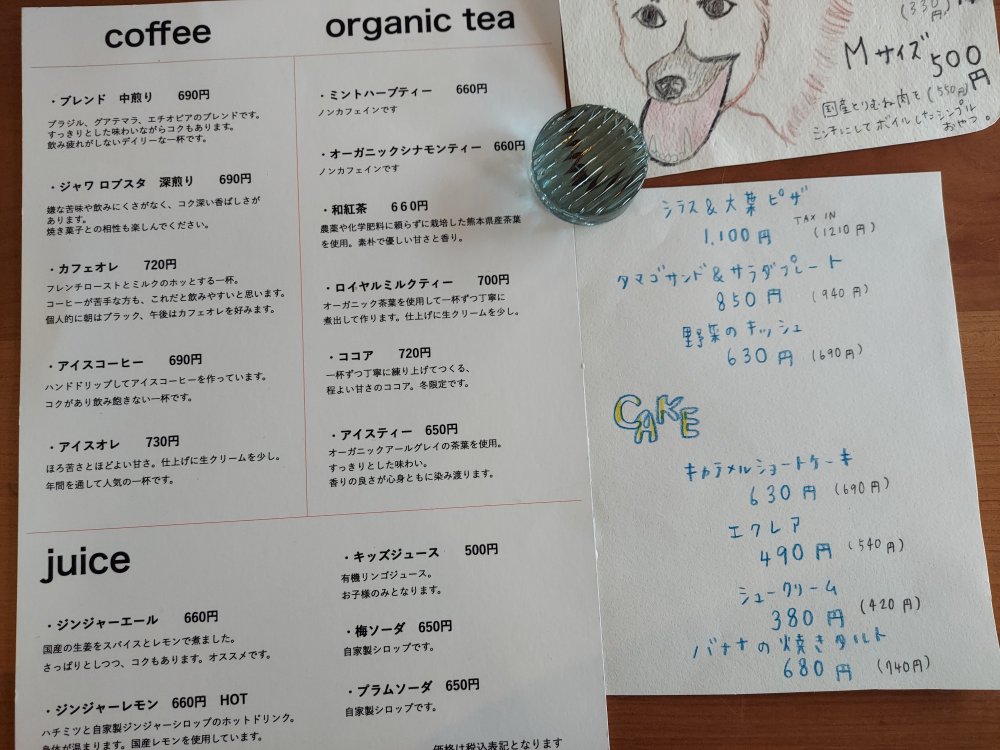 coffee
・ブレンド 中煎り 690円
ブラジル、グアテマラ、エチオピアのブレンドです。
すっきりとした味わいながらコクもあります。
飲み疲れがしないデイリーな一杯です。
・ジャワ ロブスタ 深煎り 690円
嫌な苦味や飲みにくさがなく、コク深い香ばしさが
あります。
焼き菓子との相性も楽しんでください。
・カフェオレ 720円
フレンチローストとミルクのホッとする一杯。
コーヒーが苦手な方も、これだと飲みやすいと思います。
個人的に朝はブラック、午後はカフェオレを好みます。
・アイスコーヒー 690円
ハンドドリップしてアイスコーヒーを作っています。
コクがあり飲み飽きない一杯です。
・アイスオレ 730円
ほろ苦さとほどよい甘さ。仕上げに生クリームを少し。
年間を通して人気の一杯です。
organic tea
・ミントハーブティー 660円
ノンカフェインです
・オーガニックシナモンティー 660円
ノンカフェインです
・和紅茶 660円
農薬や化学肥料に頼らずに栽培した熊本県産茶葉
を使用。素朴で優しい甘さと香り。
・ロイヤルミルクティー 700円
オーガニック茶葉を使用して一杯ずつ丁寧に
煮出して作ります。仕上げに生クリームを少し。
・ココア 720円
一杯ずつ丁寧に練り上げてつくる、
程よい甘さのココア。冬限定です。
・アイスティー 650円
オーガニックアールグレイの茶葉を使用。
すっきりとした味わい。
香りの良さが心身ともに染み渡ります。
juice
・ジンジャーエール 660円
国産の生姜をスパイスとレモンで煮ました。
さっぱりとしつつ、コクもあります。オススメです。
・ジンジャーレモン 660円 HOT
ハチミツと自家製ジンジャーシロップのホットドリンク。
身体が温まります。国産レモンを使用しています。
・キッズジュース 500円
有機リンゴジュース。
お子様のみとなります。
・梅ソーダ 650円
自家製シロップです。
・プラムソーダ 650円
自家製シロップです。
価格は税込表記となります
(330円)
Mサイズ 500円
(550円)
国産とりむね肉を
ミンチにしてボイルしたシンプル
おやつ。
シラス&大葉ピザ
1,100円 TAX IN (1210円)
タマゴサンド&サラダプレート
850円 (940円)
野菜のキッシュ
630円 (690円)
CAKE
キャラメルショートケーキ
630円 (690円)
エクレア
490円 (540円)
シュークリーム
380円 (420円)
バナナの焼きタルト
680円 (740円)